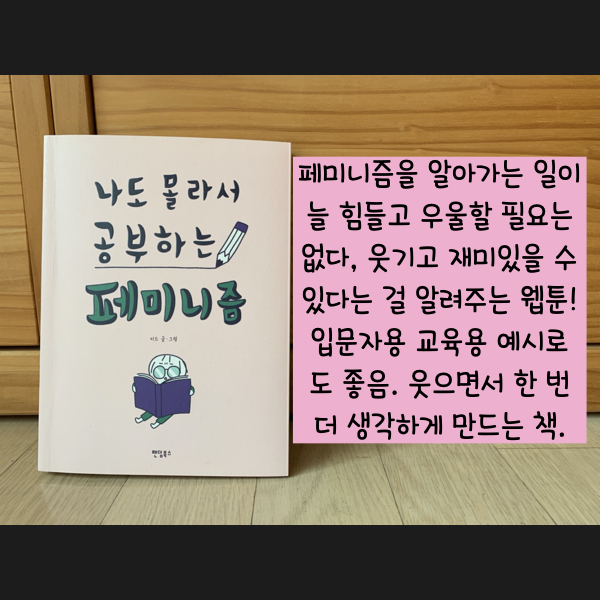 나도 몰라서
공부하는
페미니즘
키드 글·그림
팬덤북스
페미니즘을 알아가는 일이
늘 힘들고 우울할 필요는
없다, 웃기고 재미있을 수
있다는 걸 알려주는 웹툰!
입문자용 교육용 예시로
도 좋음. 웃으면서 한 번
더 생각하게 만드는 책.